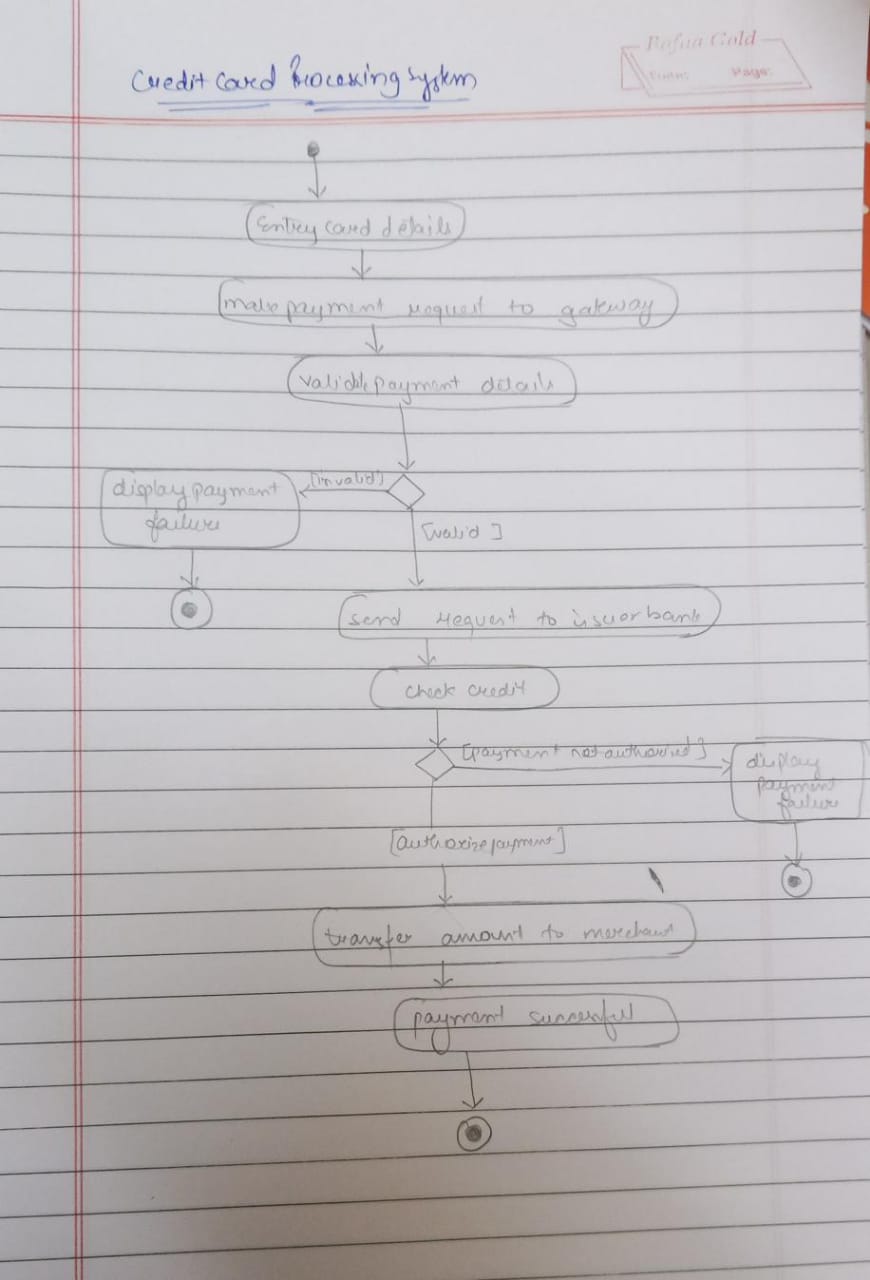 Credit Card Processing System
Rofua Gold
Page:
Entry card details
make payment request to gateway
validate payment details
[invalid]
display payment
failure
[valid]
send request to issuor bank
check credit
[payment not authorized]
display
payment
failure
[authorize payment]
transfer amount to merchant
payment successful